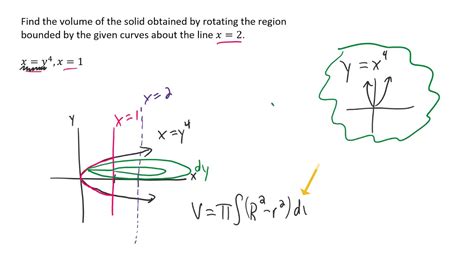 Find the volume of the solid obtained by rotating the region
bounded by the given curves about the line x = 2.
x = y⁴, x = 1
y = x⁴
x = 2
x = 1
Y
x = y⁴
dy
x
V = π∫(R² - r²) d